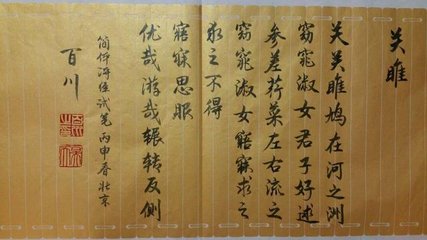 关雎
关关雎鸠在河之洲
窈窕淑女君子好逑
参差荇菜左右流之
窈窕淑女寤寐求之
求之不得
寤寐思服
优哉游哉辗转反侧
试笔丙申春
百川